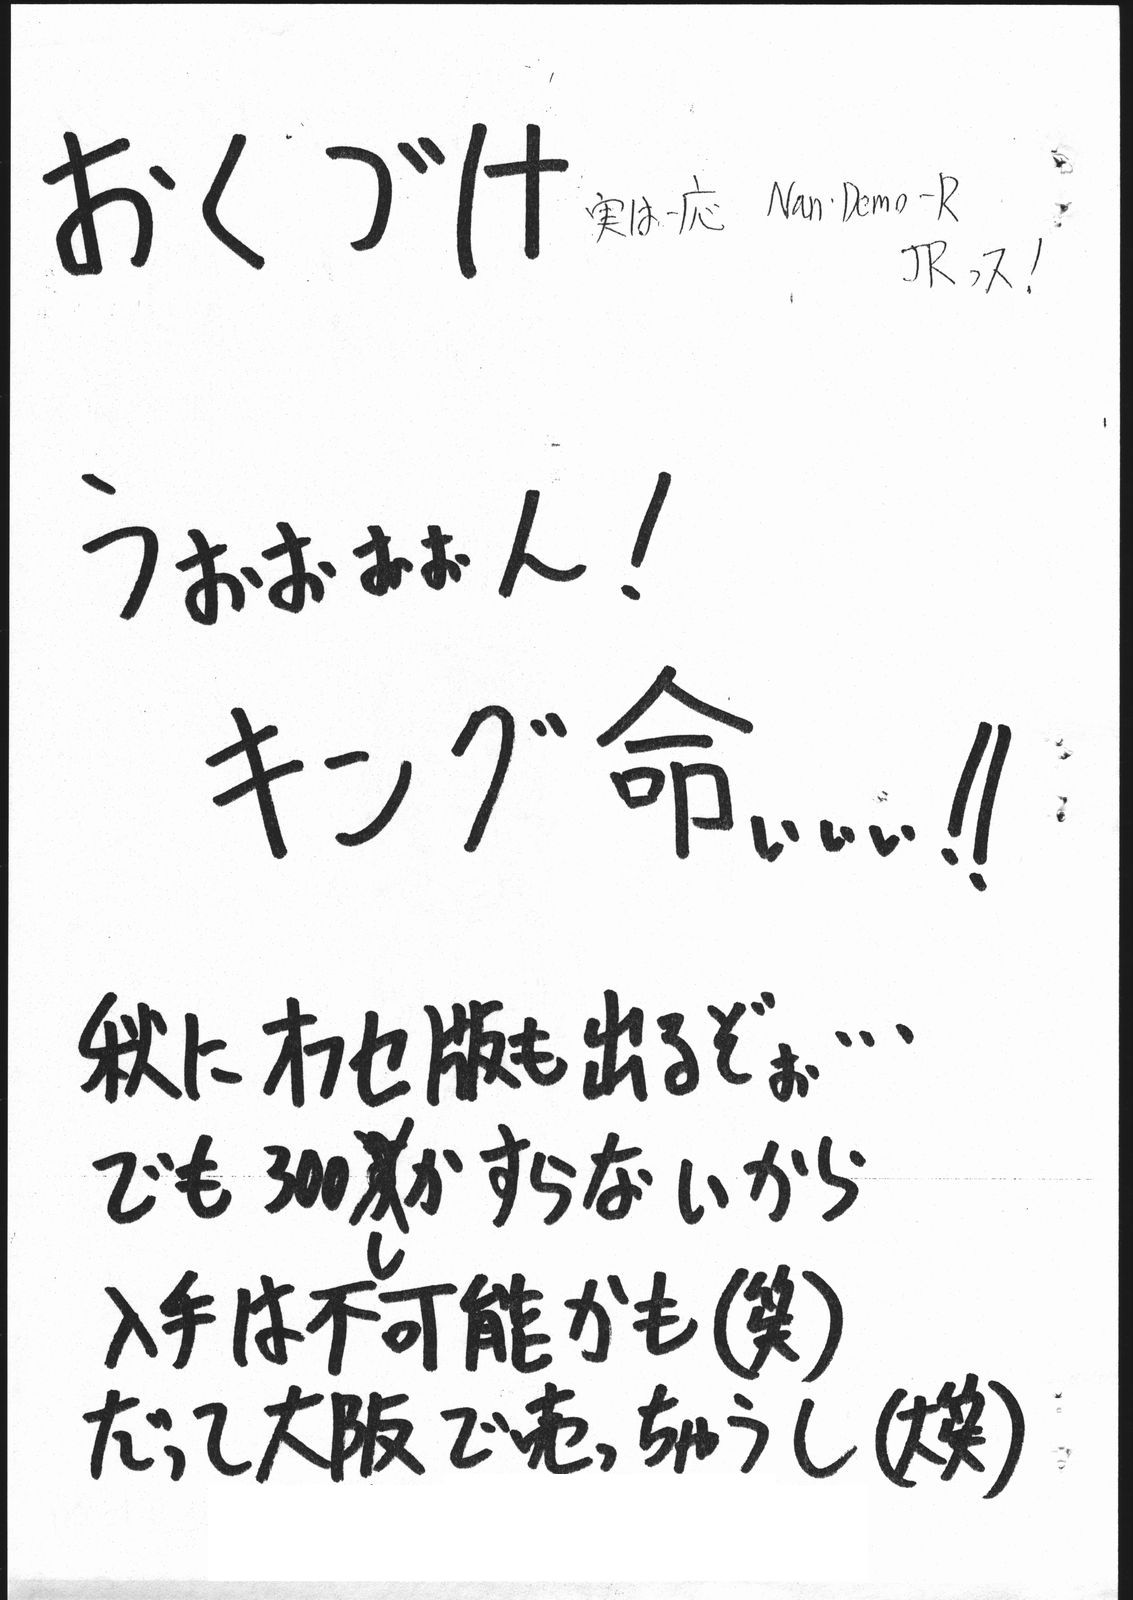 おくづけ 実は一応 Nan・Demo-R
JRっス!
うぉおぉぉん!
キング命ぃぃぃ!!
秋にオフセ版も出るぞぉ…
でも300かすらないから
し
入手は不可能かも(笑)
だって大阪で売っちゃうし(大笑)